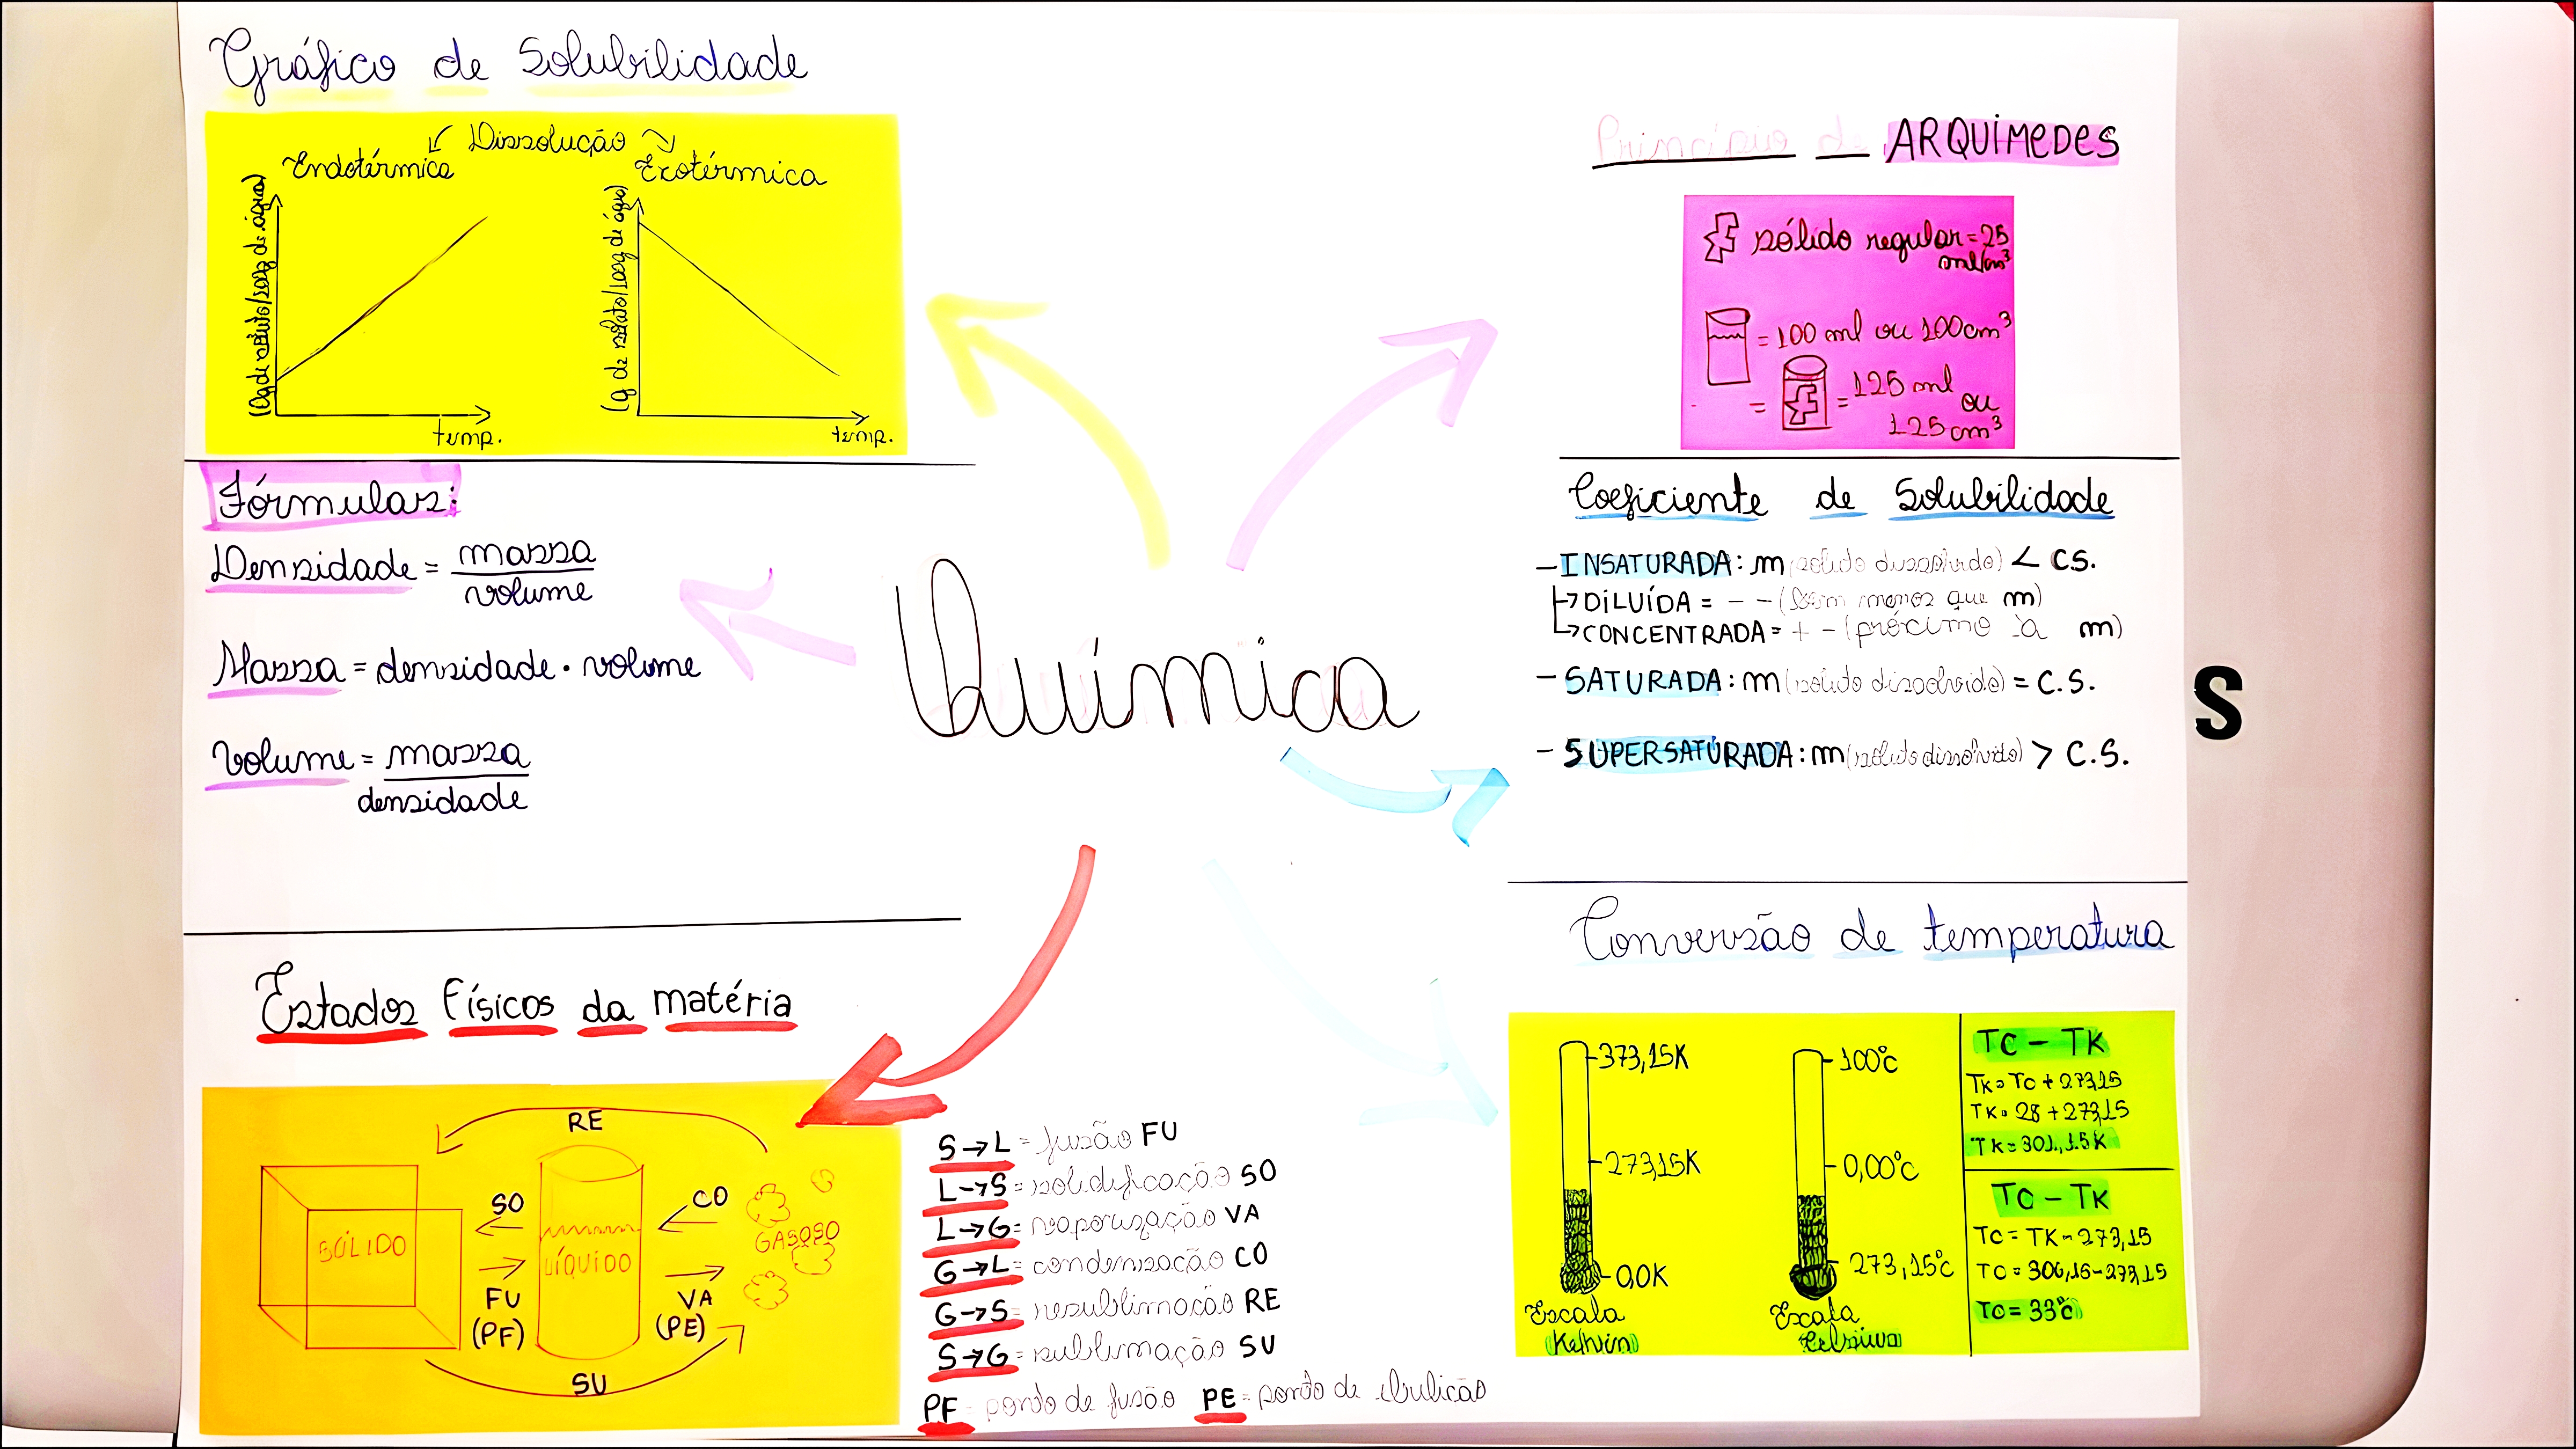 Gráfico de Solubilidade
Dissolução
Endotérmica
Exotérmica
(g de soluto/100g de água)
temp.
(g de soluto/100g de água)
temp.
Fórmulas:
Densidade = massa
volume
Massa = densidade · volume
Volume = massa
densidade
Estados Físicos da matéria
RE
SÓLIDO
SO
FU
(PF)
LÍQUIDO
CO
VA
(PE)
GASOSO
SU
S → L = fusão FU
L → S = solidificação SO
L → G = vaporização VA
G → L = condensação CO
G → S = resublimação RE
S → G = sublimação SU
PF = ponto de fusão PE = ponto de ebulição
Química
Princípio de ARQUIMEDES
sólido regular = 25
ml/cm³
= 100 ml ou 100cm³
= = 125 ml
ou
125 cm³
Coeficiente de Solubilidade
- INSATURADA: m (soluto dissolvido) < CS.
↳ DILUÍDA = - - (bem menos que m)
↳ CONCENTRADA = + - (próximo à m)
- SATURADA: m (soluto dissolvido) = C.S.
- SUPERSATURADA: m (soluto dissolvido) > C.S.
S
Conversão de temperatura
373,15K
273,15K
0,0K
Escala
Kelvin
100°C
0,00°C
273,15°C
Escala
Celsius
TC - TK
TK = TC + 273,15
TK = 28 + 273,15
TK = 301,15K
TC - TK
TC = TK - 273,15
TC = 306,15 - 273,15
TC = 33°C